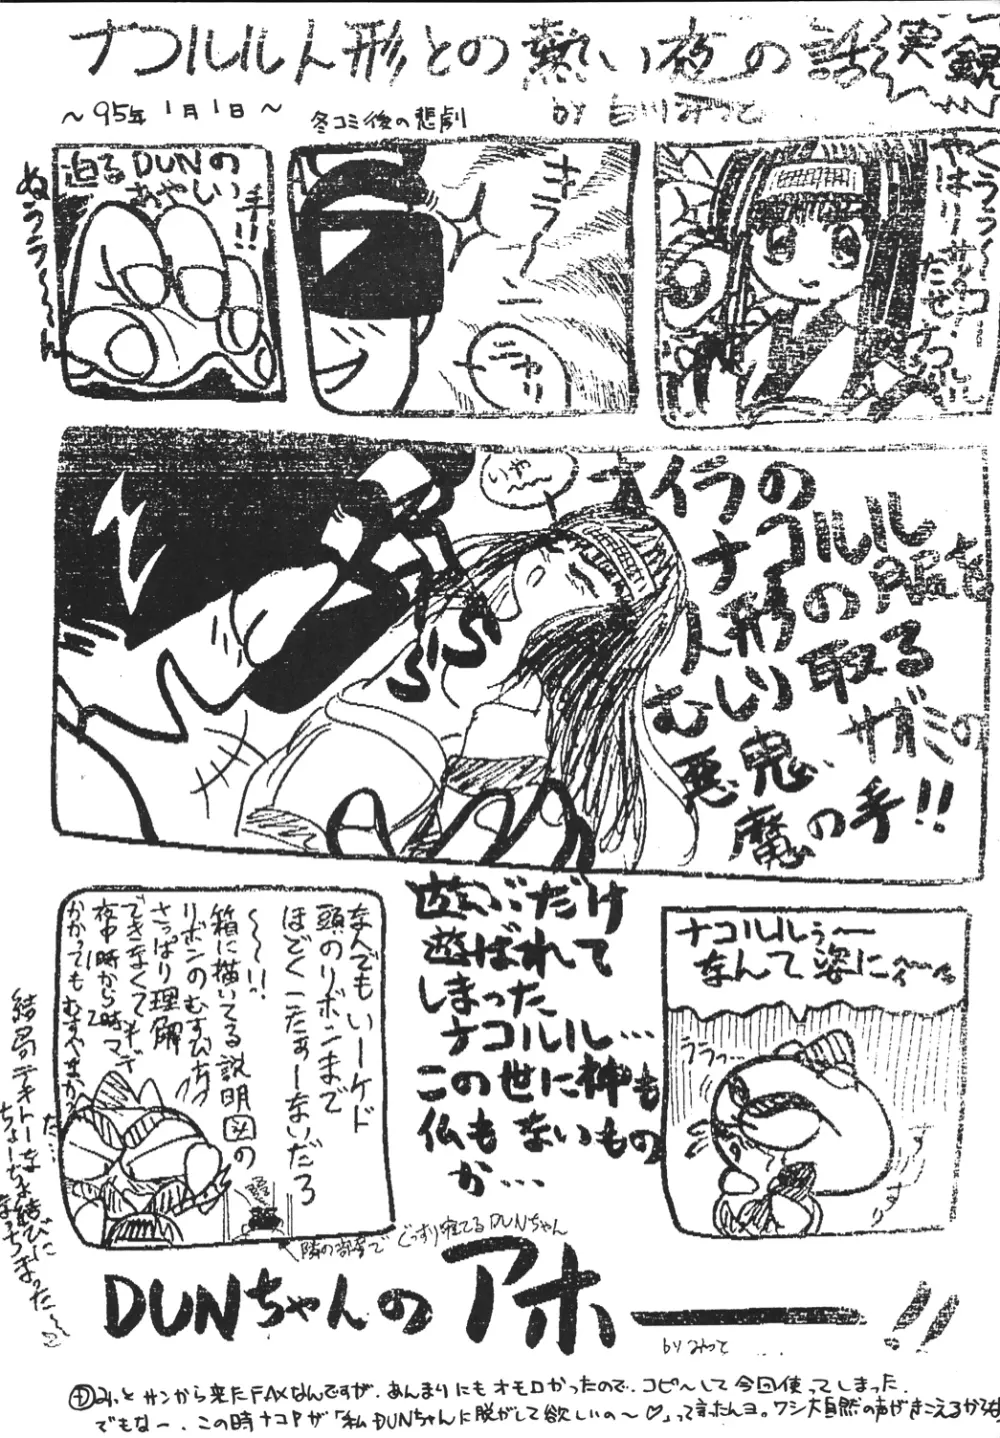 ナコルル人形との熱い夜の話
～95年1月1日～
冬コミ後の悲劇
迫るDUNの
あやしい手!!
キラ～ン
ニヤリ
いや～
ナコルル
人形の服を
むしり取る
悪鬼、サガミの
魔の手!!
なんでもいーケド
頭のリボンまで
ほどくこたぁーないだろ
～～～!!
箱に描いてる説明図の
リボンのむすび方
さっぱり理解
できなくて
夜中1時から2時マデ
かかってもむすべやまがった…
結局テキトーな
ちょーちょ結びに
なっちまった～
遊ぶだけ
遊ばれて
しまった
ナコルル…
この世に神も
仏もないもの
か…
ナコルルぅ～
なんて姿に～
ううっ…
隣の部屋でぐっすり寝てるDUNちゃん
DUNちゃんのアホーーー!!
by みつて
みっとサンから来たFAXなんですが、あんまりにもオモロかったので、コピ～して今回使ってしまった。
でもなー、この時ナコPが「私DUNちゃんに脱がして欲しいの～♡」って言ったんヨ。ワシ大自然の声がきこえるから